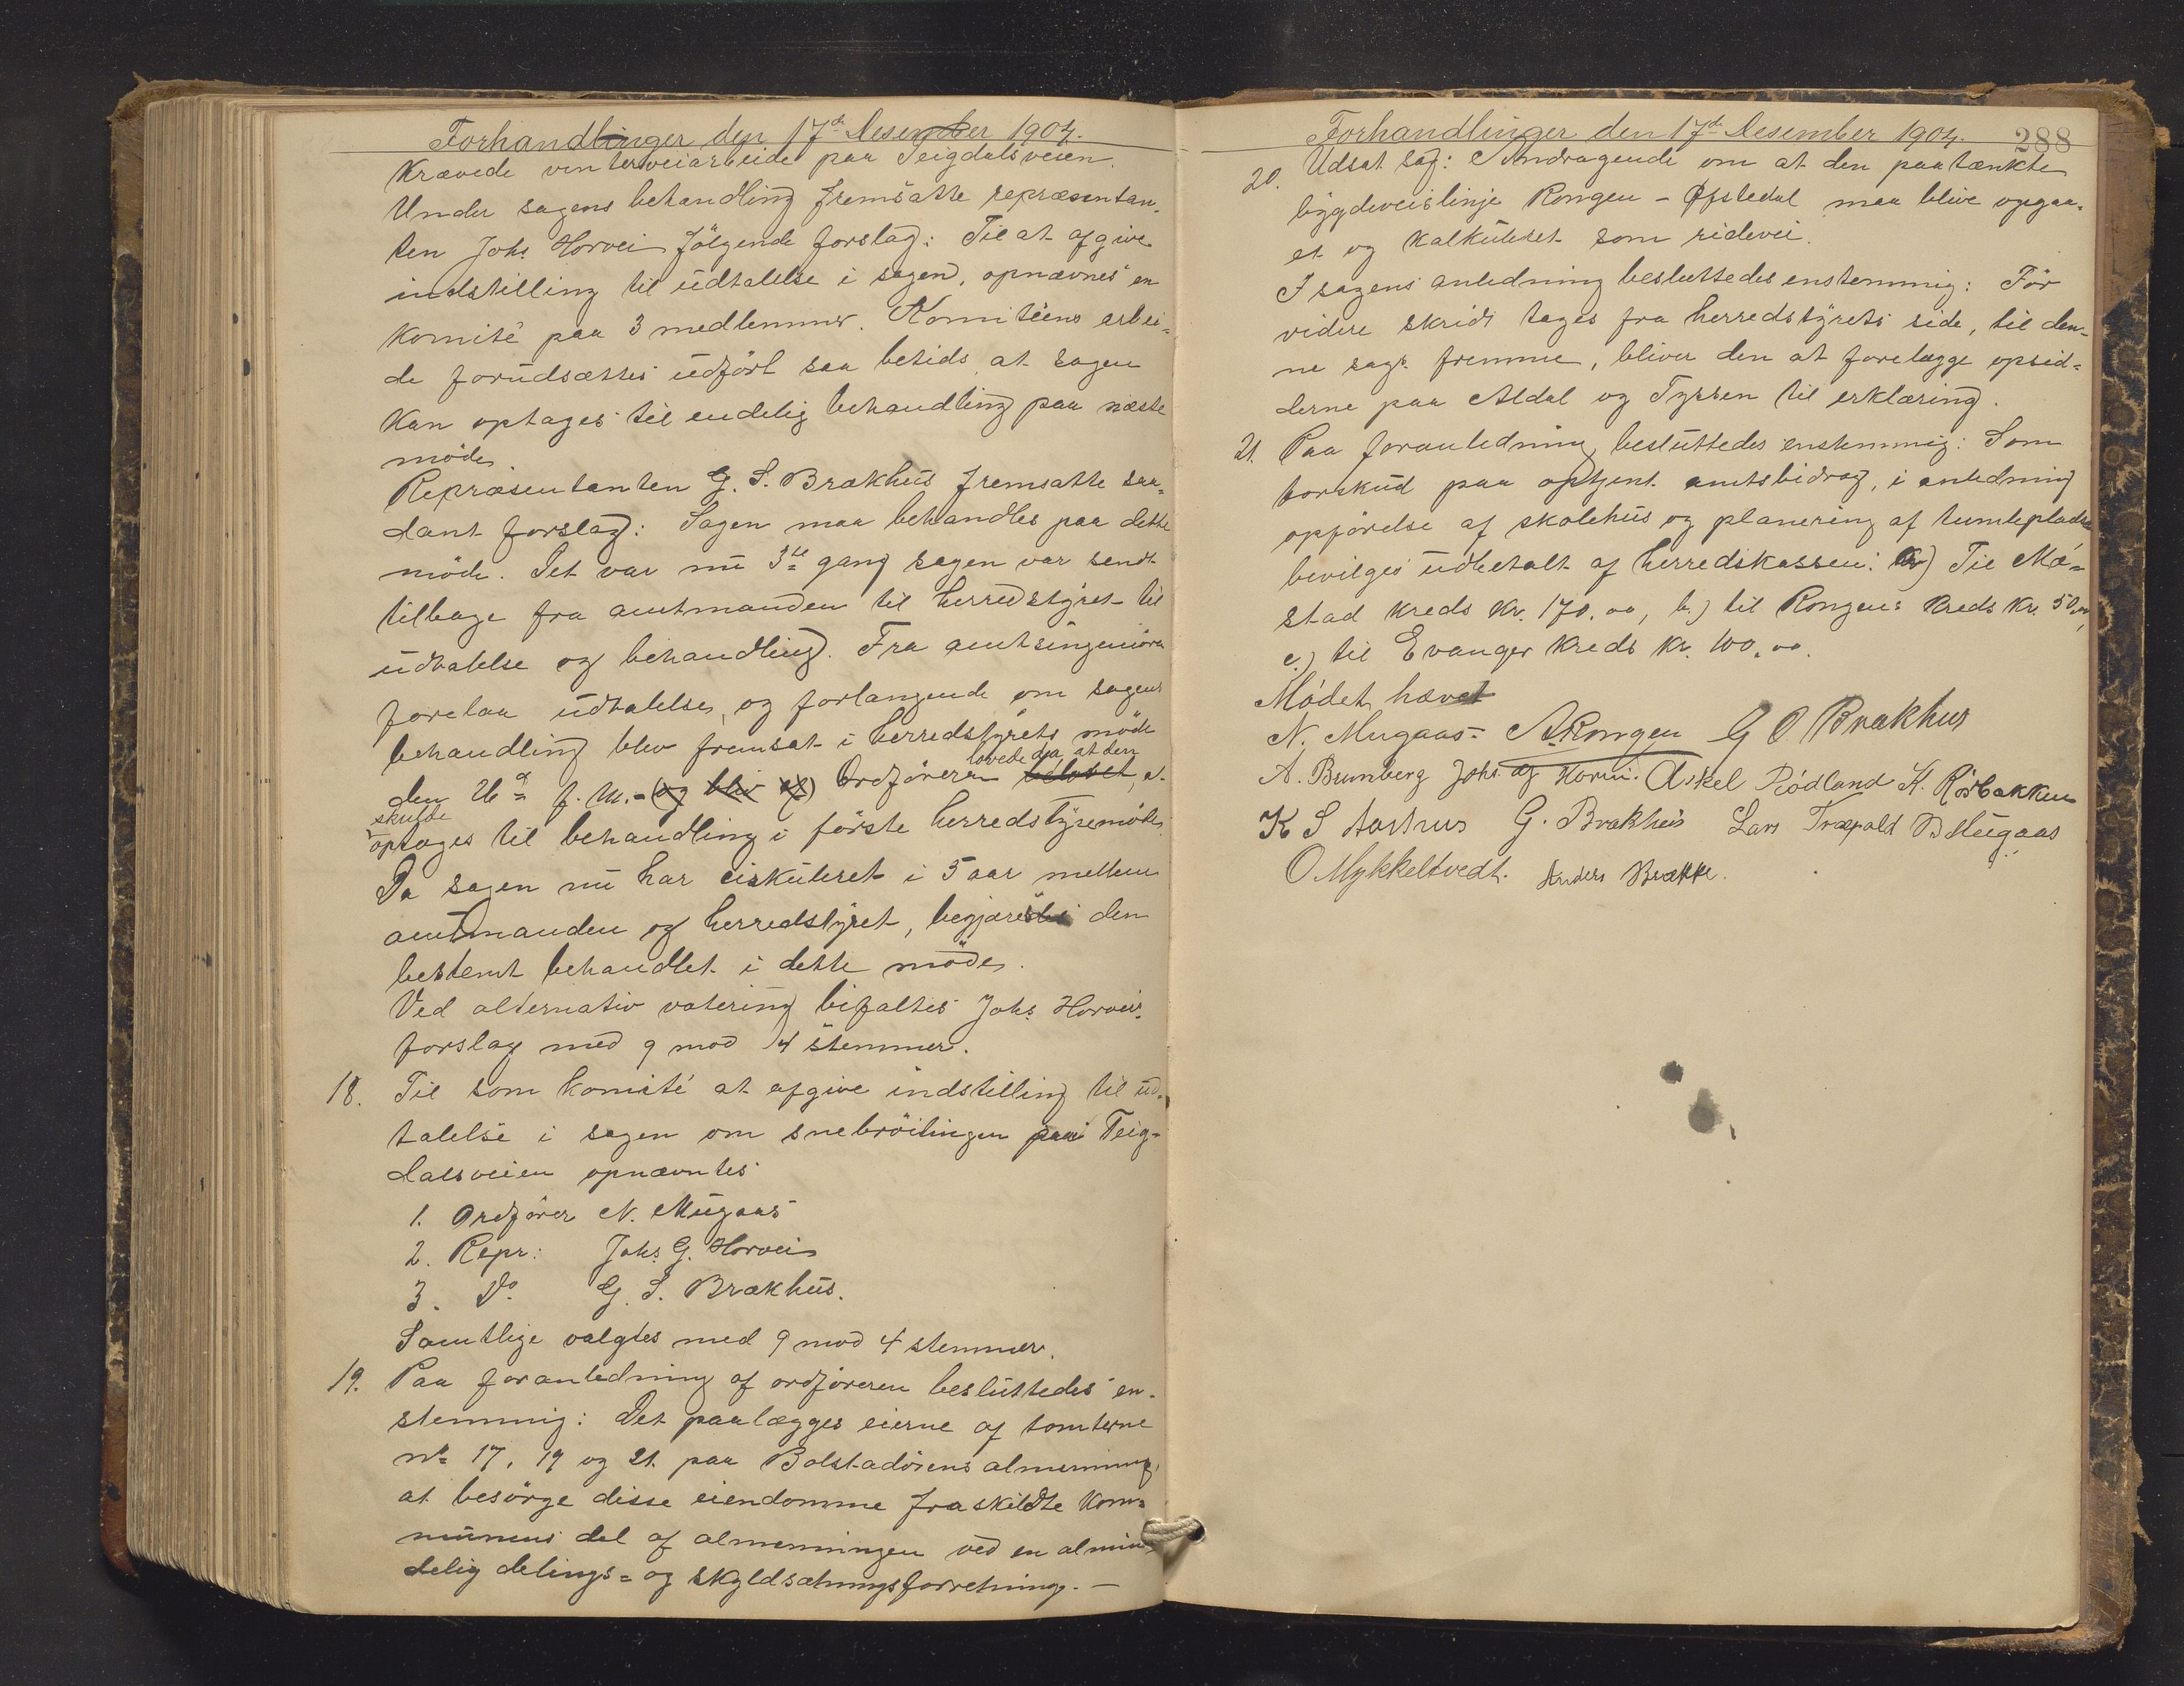 Forhandlinger den 17de Desember 1904.
krævede vinterveiarbeide paa Teigdalsveien.
Under sagens behandling fremsatte repræsentan-
ten Johs Horvei følgende forslag: Til at afgive
indstilling til udtalelse i sagen, opnævnes en
komité paa 3 medlemmer. Komitéens arbei=
de forudsættes udført saa betids, at sagen
kan optages til endelig behandling paa næste
møde.
Repræsentanten G. S. Brækhus fremsatte saa=
dant forslag: Sagen maa behandles paa dette
møde. Det var nu 3die gang sagen var sendt
tilbage fra amtmanden til herredstyret til
udtalelse og behandling. Fra amtsingeniøren
forelaa udtalelse, og forlangende om sagens
behandling blev fremsat i herredstyrets møde
den f. m. - (og blev af) Ordføreren lovede da, at den
skulde optages til behandling i første herredstyremøde.
Da sagen nu har cirkuleret i 5 aar mellem
amtmanden og herredstyret, begjæres den
bestemt behandlet i dette møde.
Ved alternativ votering bifaltes Johs Horveis
forslag med 9 mod 4 stemmer.
18. Til som komité at afgive indstilling til ud-
talelse i sagen om snebrøitingen paa Teig-
dalsveien opnævntes
1. Ordfører N. Mugaas
2. Repr: Johs G. Horvei
3. Do G. S. Brækhus.
Samtlige valgtes med 9 mod 4 stemmer.
19. Paa foranledning af ordføreren besluttedes en-
stemmig: Det paalægges eierne af tomterne
No 17, 19 og 21 paa Bolstadørens almenning,
at besørge disse eiendomme fraskildte kom=
munens del af almenningen ved en almin-
delig delings= og skyldsætningsforretning. —
Forhandlinger den 17de Desember 1904. 288
20. Udsat sag: Andragende om at den paatænkte
bygdeveislinje Rongen - Øfstedal maa blive opgaa-
et og kalkuleret som ridevei.
I sagens anledning besluttedes enstemmig: Før
videre skridt tages fra herredstyrets side, til den-
ne sags fremme, bliver den at forelægge opsid=
derne paa Aldal og Tyssen til erklæring.
21. Paa foranledning besluttedes enstemmig: Som
forskud paa optjent amtsbidrag, i anledning
opførelse af skolehus og planering af tumleplads
bevilges udbetalt af herredskassen: a) Til Mø=
stad kreds kr. 170.00, b.) til Rongens kreds kr. 50,00,
c.) til Evanger kreds kr. 100.00.
Mødet hævet
N. Mugaas. A Rongen G O Brakhus
A. Brunberg Johs. G Horvei. Askel Rødland K. Rørbakken
K S Aarhus G. Brakhus Lars Træpald B Mugaas
O Mykkeltvedt. Anders Brække.